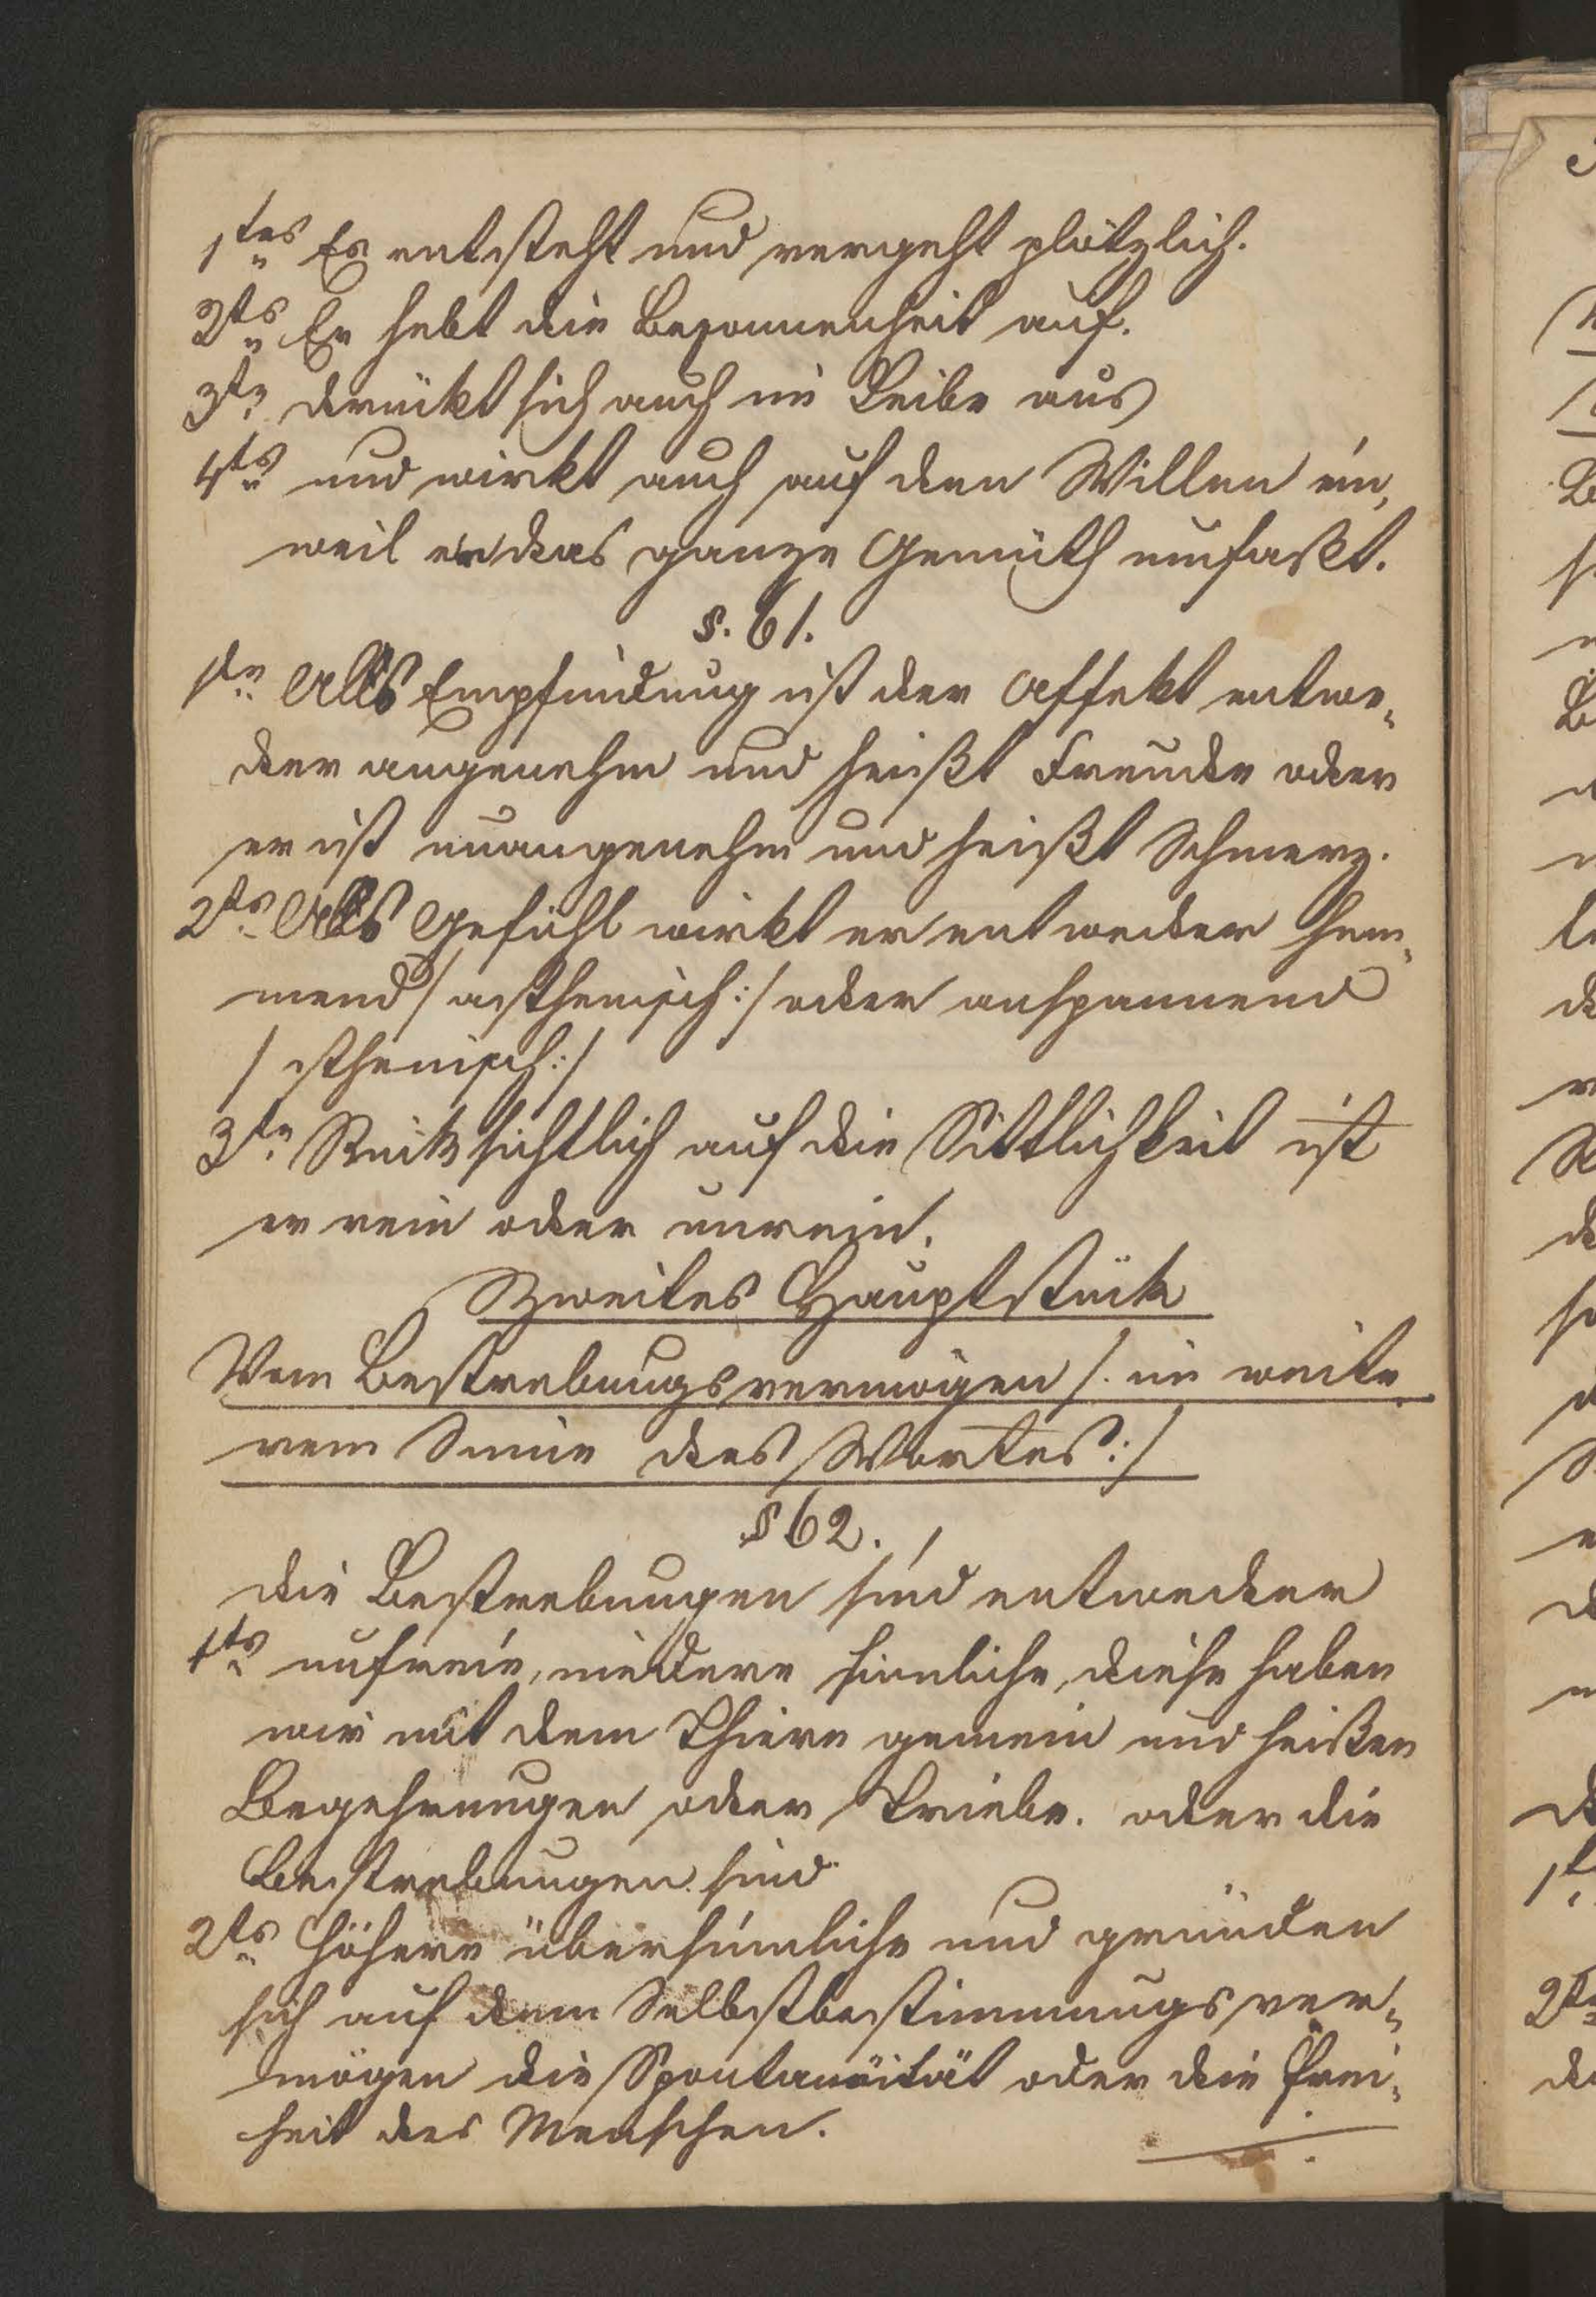 1tes Er entsteht und vergeht plötzlich.
2ts Er hebt die Besonnenheit auf.
3ts drückt sich auch im Leibe aus
4ts und wirkt auch auf den Willen ein,
weil er das ganze Gemüth umfaßt.
§. 61.
1tn Als Empfindung ist der Affekt entwe-
der angenehm und heißt Freude oder
er ist unangenehm und heißt Schmerz.
2ts Als Gefühl wirkt er entweder hem-
mend / asthenisch :/ oder anspannend
/ sthenisch :/
3tn Rücksichtlich auf die Sittlichkeit ist
er rein oder unrein.
Zweites Hauptstück
Vom Bestrebungsvermögen /. im weite
rem Sinne des Wortes :/
§ 62.
die Bestrebungen sind entweder
1ts unfreie, niedere sinnliche, diese haben
wir mit dem Thiere gemein und heißen
Begehrungen oder Triebe. oder die
Bestrebungen sind
2ts höhere übersinnliche und gründen
sich auf dem Selbstbestimmungsver-
mögen die Spontanäität oder die Frei-
heit des Menschen.